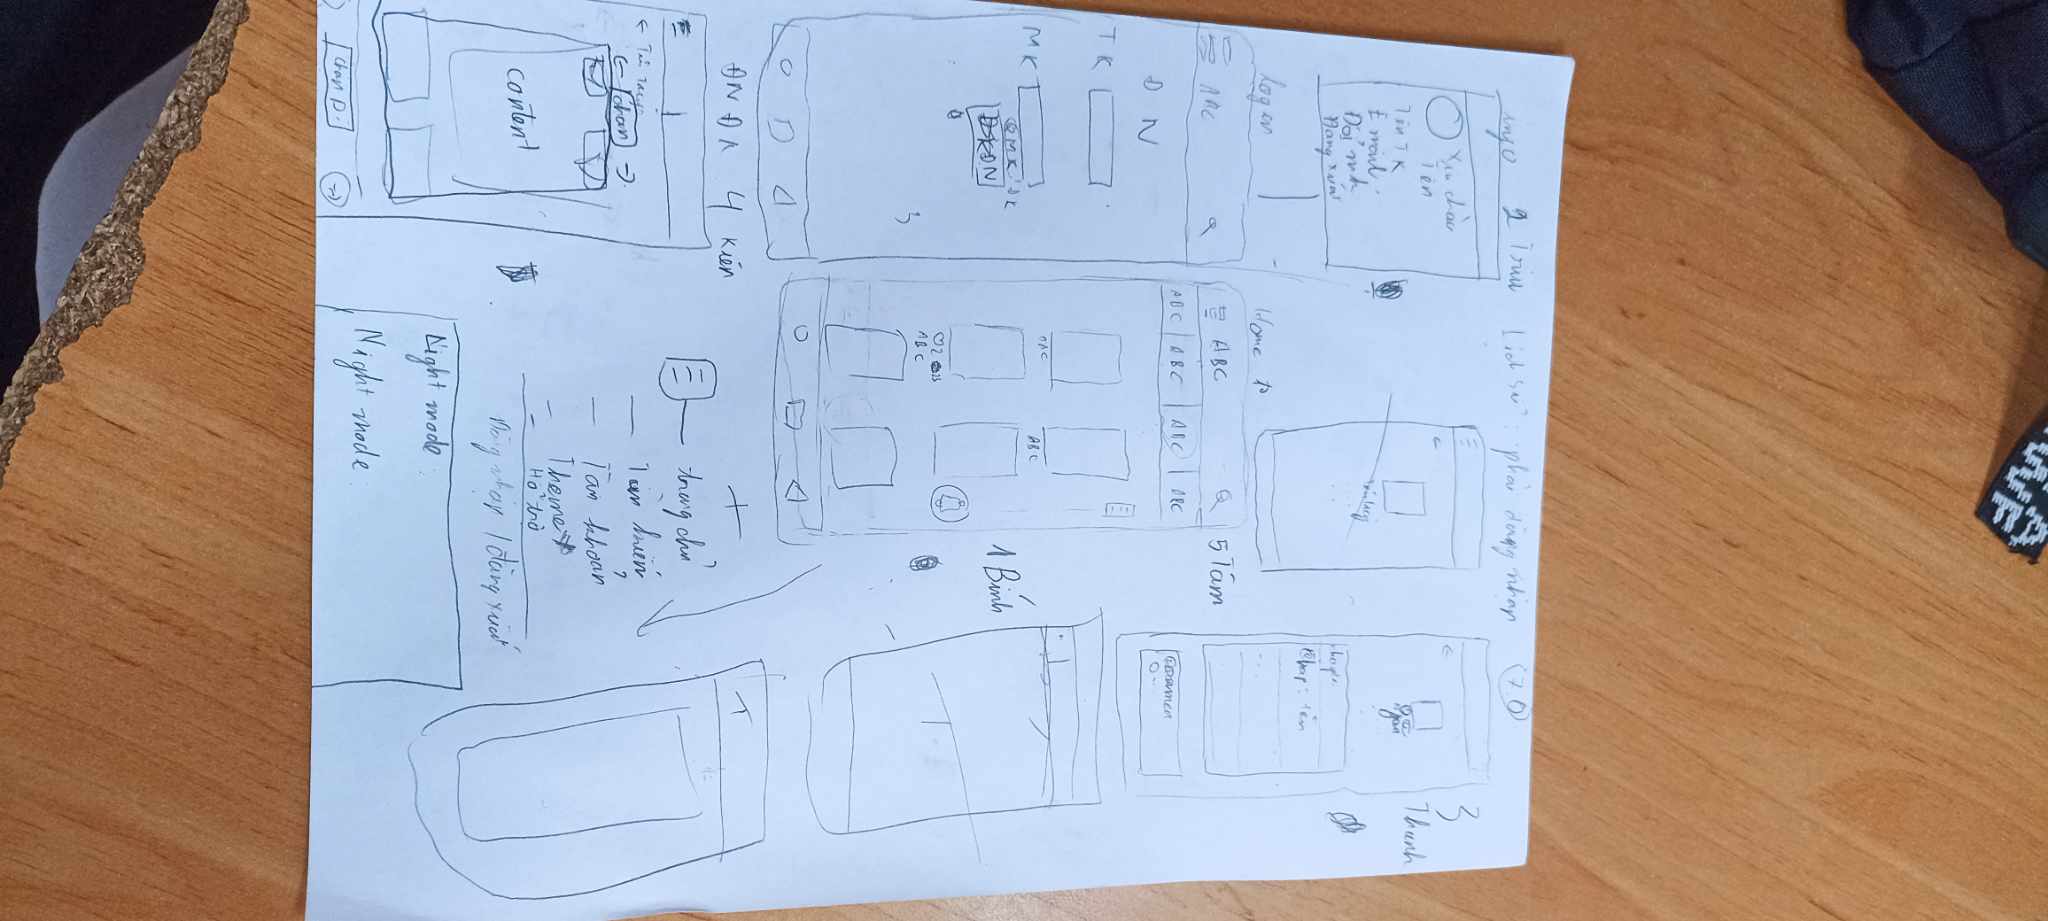 info 2 Triều Lịch Sử : phải đăng nhập 7.0
Xin chào
Tên
Tên TK
Email
Đổi mk
Đăng xuất
3
Thanh
Chap : tên
login
ABC
Đ N
TK
MK
QMK ĐK
ĐN
Home
ABC
ABC ABC ABC ABC
ABC ABC
2
ABC
5 Tám
1 Bính
ĐN ĐK 4 Kiên
Tên Truyện
chap
content
trang chủ
Tìm kiếm
Tài khoản
Theme
Hỗ trợ
Đăng nhập / đăng xuất
Light mode
Night mode